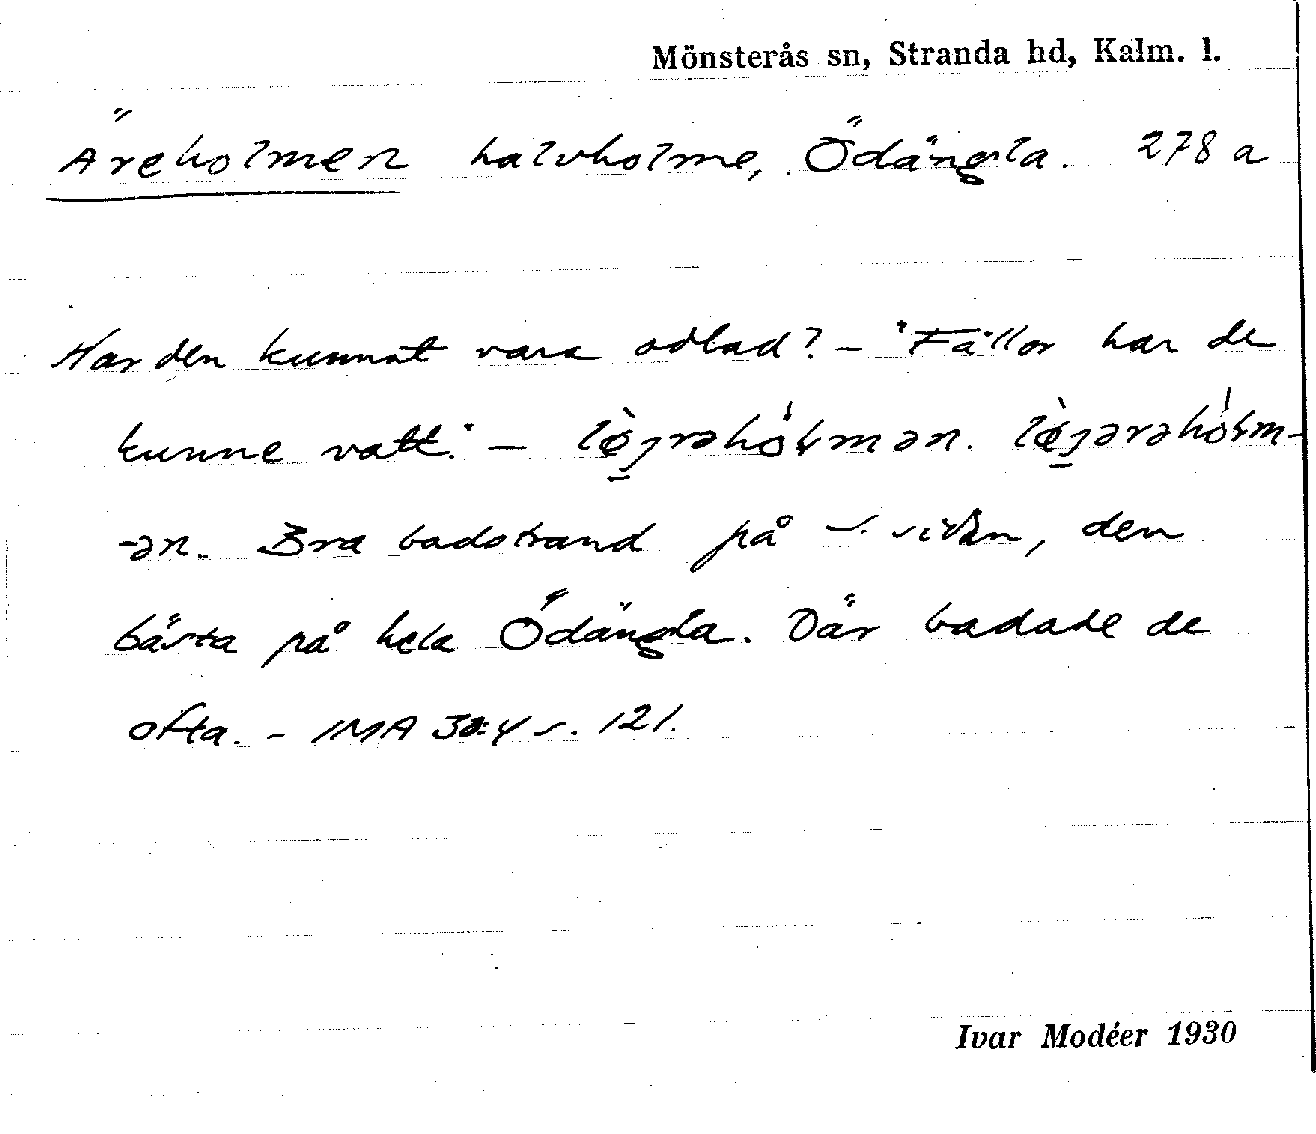 Mönsterås sn, Stranda hd, Kalm. l.
Äreholmen halvholme, Ödängla. 278 a
Har den kunnat vara odlad? – "Fällor har de
kunne vatt." –
-ən. Bra badstrand på s. sidan, den
bästa på hela Ödängla. Där badade de
ofta. – IMA 30:4 s. 121.
Ivar Modéer 1930